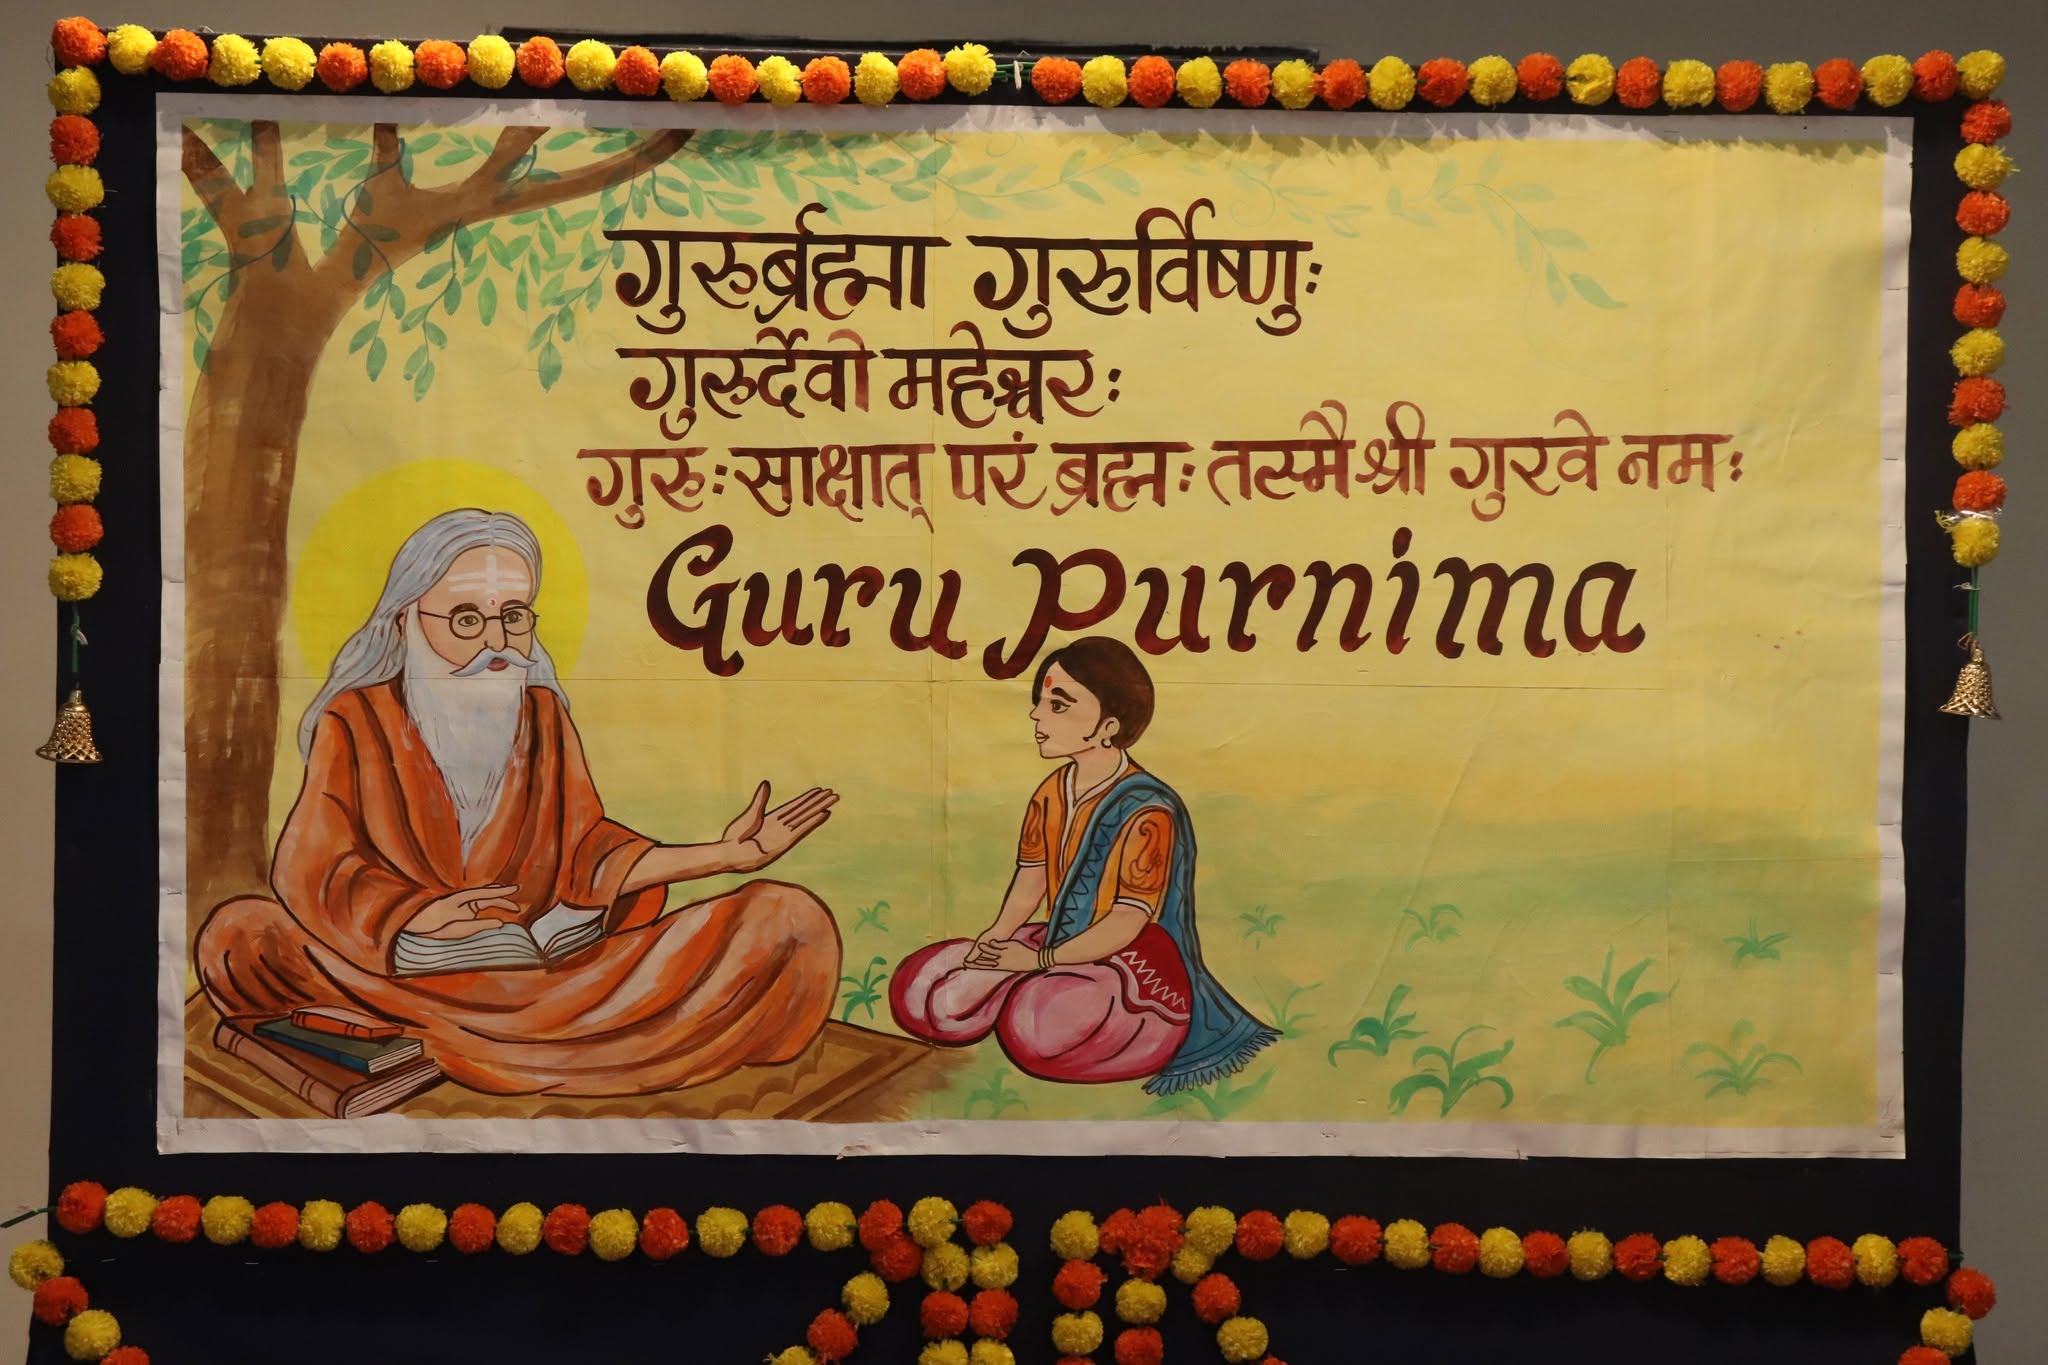 गुरुर्ब्रह्मा गुरुर्विष्णुः
गुरुर्देवो महेश्वरः
गुरुः साक्षात् परं ब्रह्मः तस्मै श्री गुरवे नमः
Guru Purnima